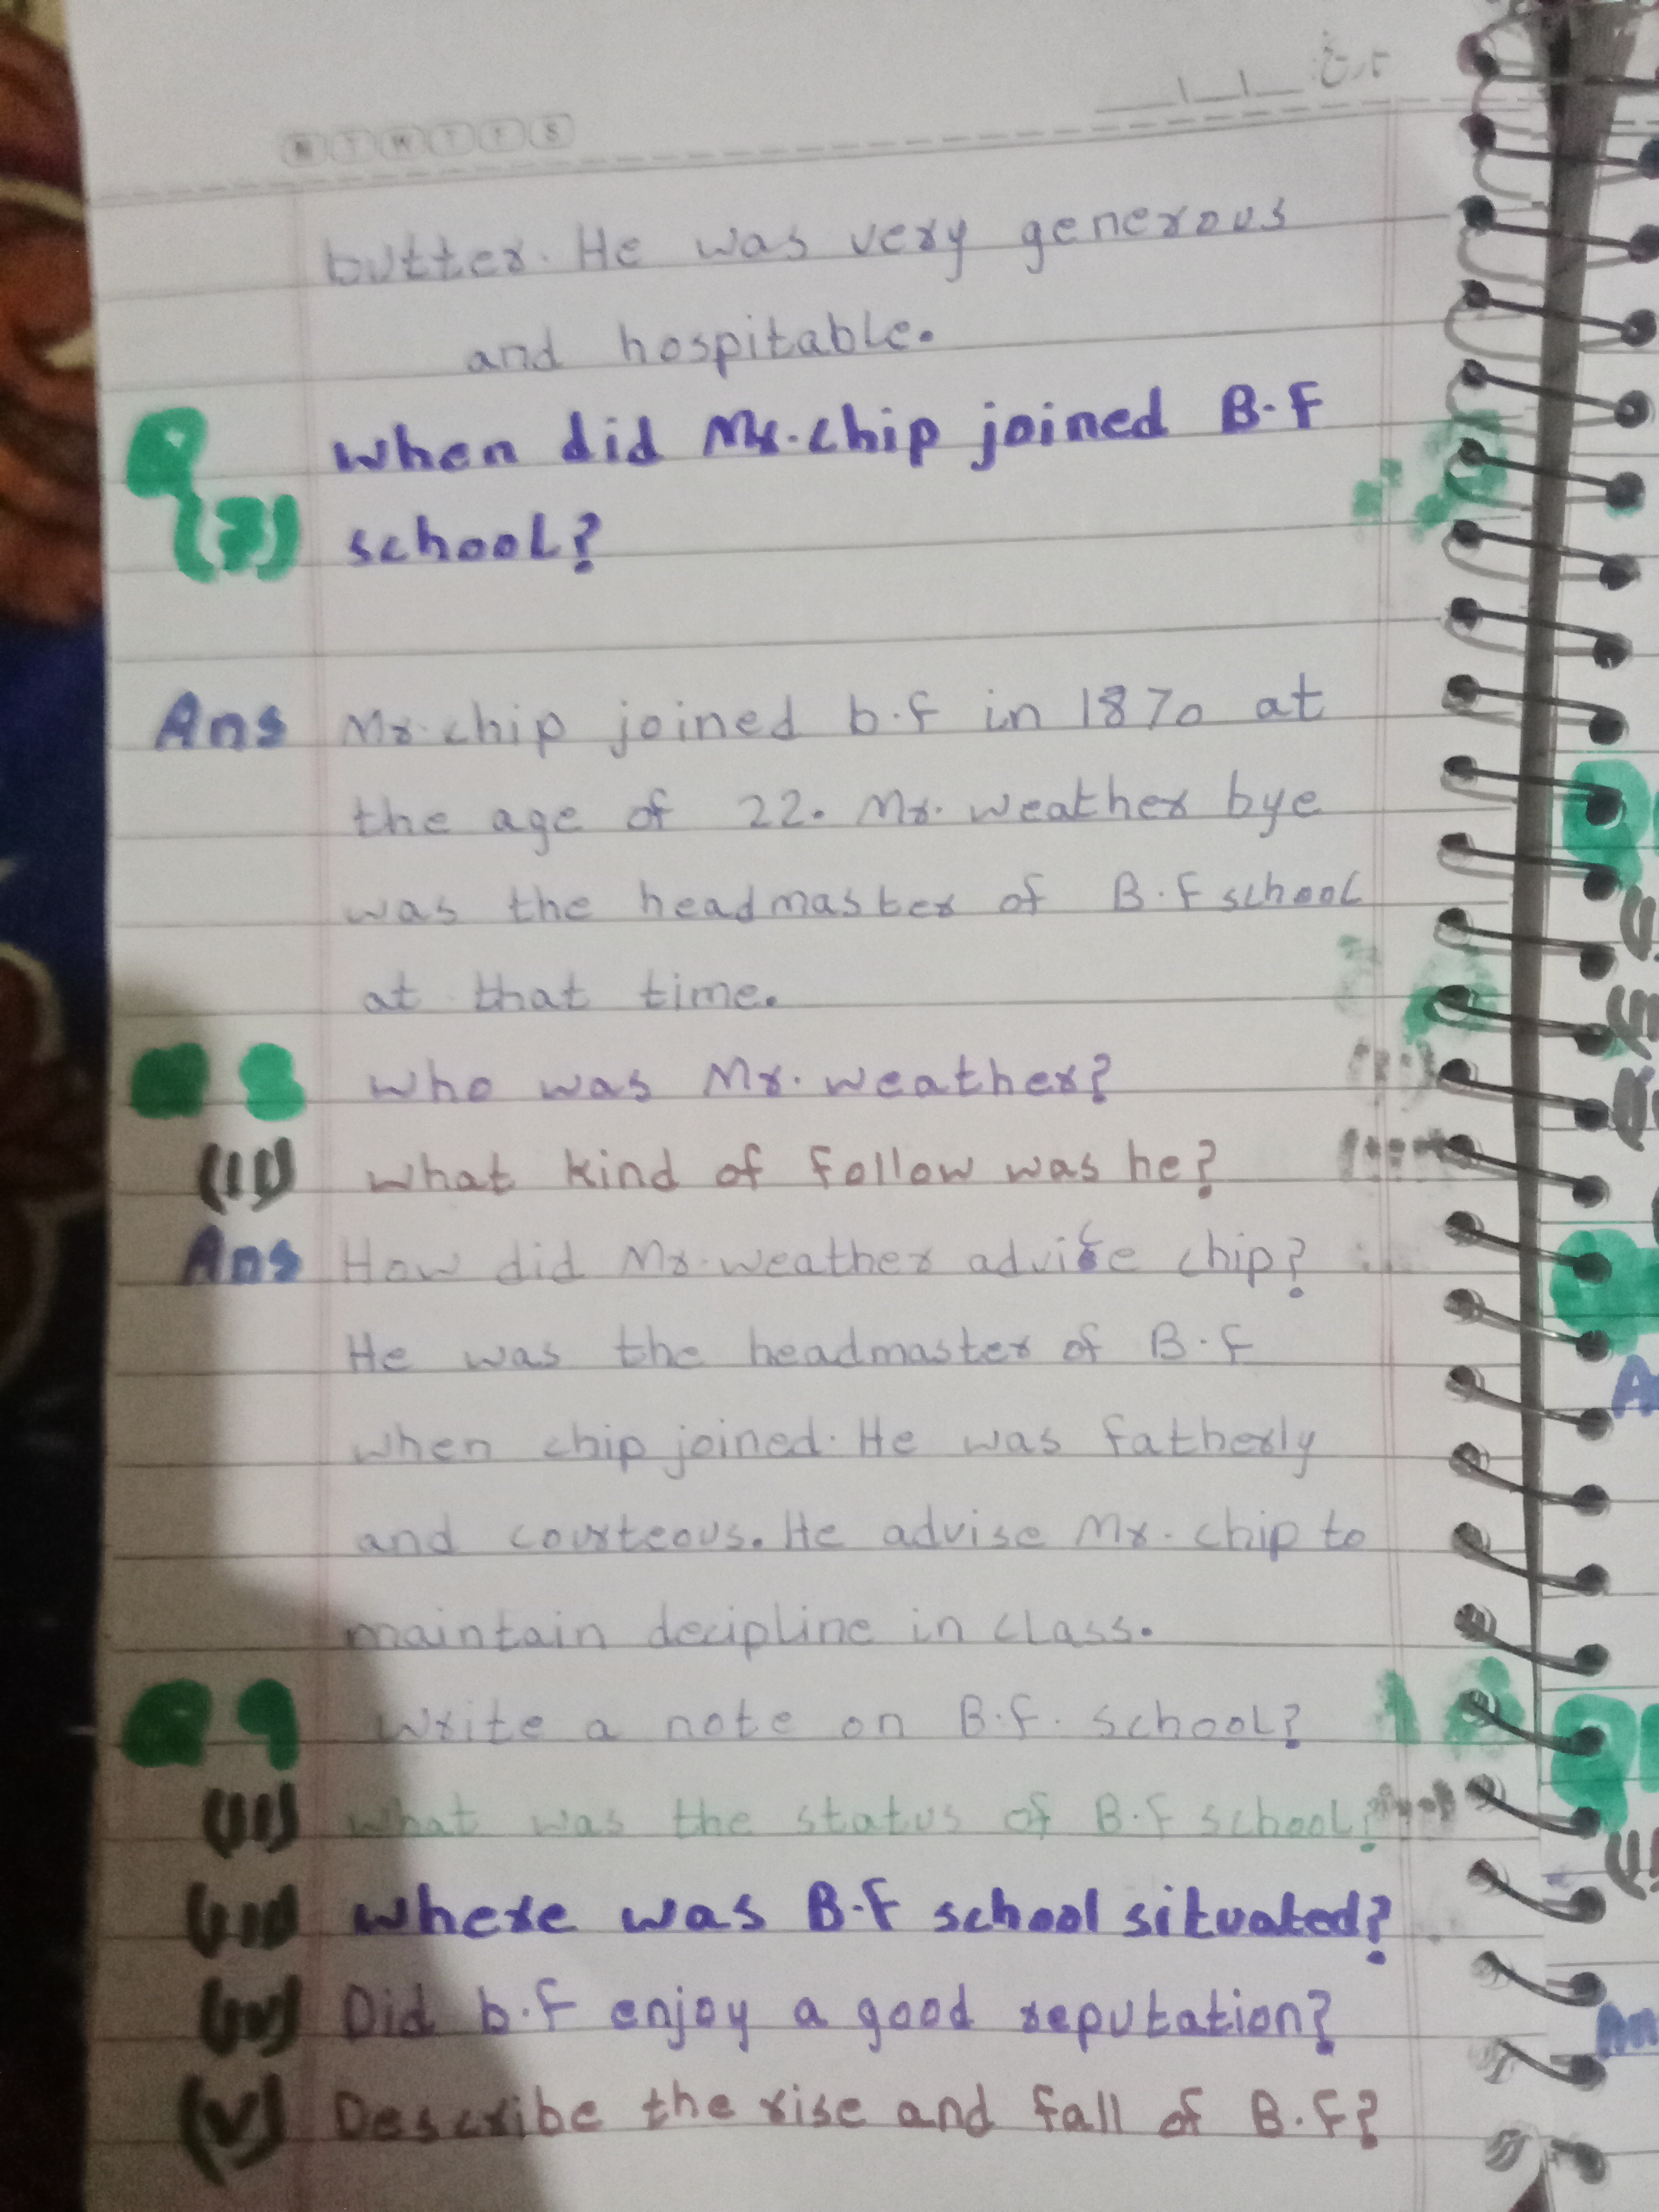 M T W T F S
butter. He was very generous
and hospitable.
Q when did Mr. chip joined B.F
(7) school?
Ans Mr. chip joined b.f in 1870 at
the age of 22. Mr. weather bye
was the headmaster of B.F school
at that time.
Q 8 who was Mr. weather?
(ii) what kind of follow was he?
Ans How did Mr. weather advise chip?
He was the headmaster of B.F
when chip joined. He was fatherly
and courteous. He advise Mr. chip to
maintain decipline in class.
Q 9 write a note on B.f. school?
(ii) what was the status of B.F school?
(iii) where was B.F school situated?
(iv) Did b.f enjoy a good reputation?
(v) Describe the rise and fall of B.F?